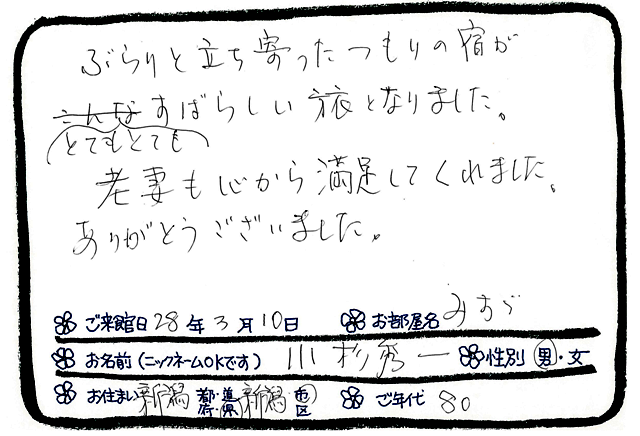 ぶらりと立ち寄ったつもりの宿が
こんなすばらしい旅となりました。
とてもとても
老妻も心から満足してくれました。
ありがとうございました。
ご来館日 28年3月10日 お部屋名
お名前(ニックネームOKです) 川 杉 秀一 性別 男・女
お住まい 新潟 都・道・府・県 新潟 市・区 ご年代 80